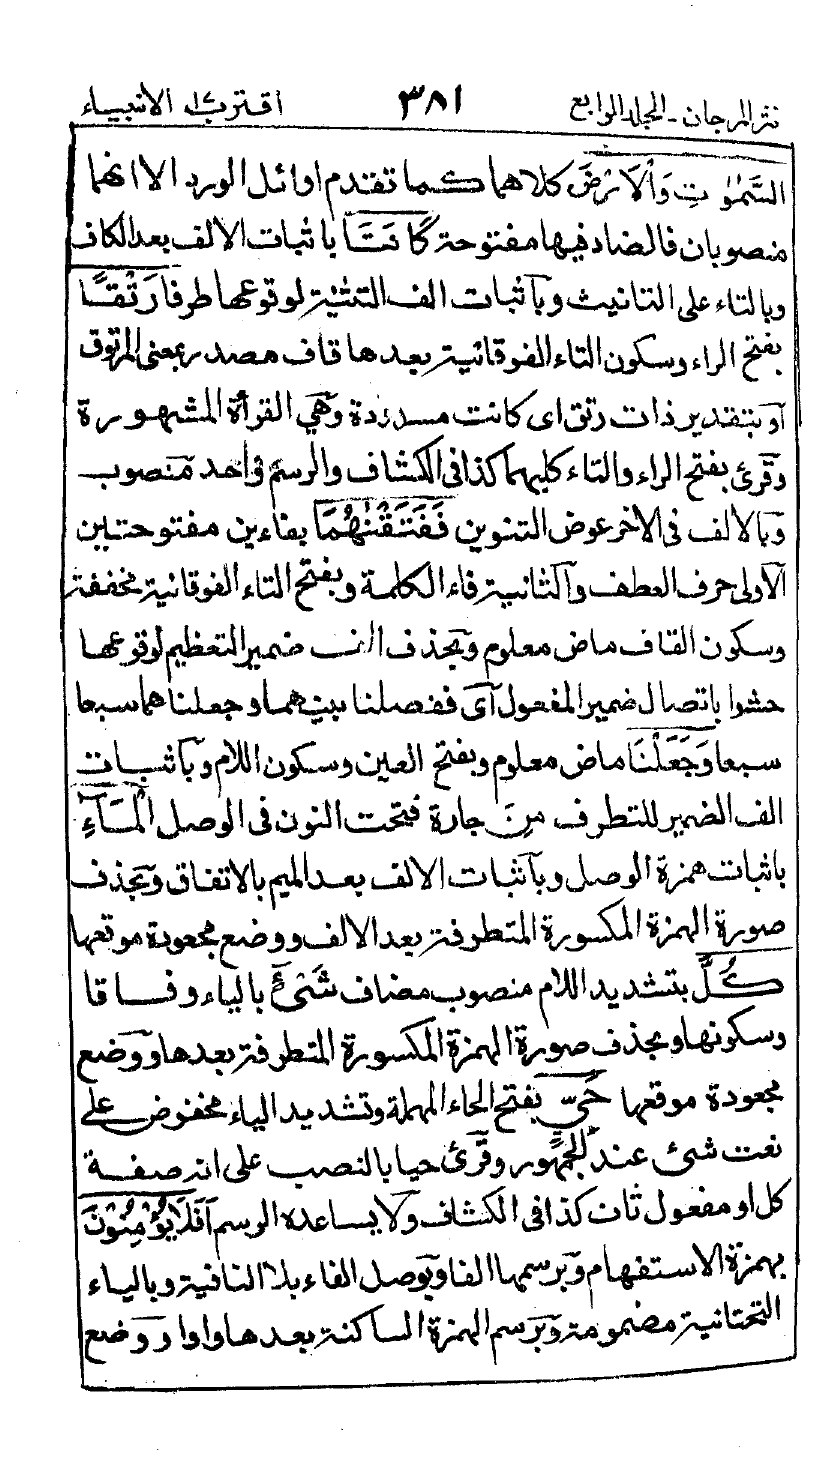 نثر المرجان ـ المجلد الرابع ٣٨١ اقترب ١٧ الانبياء
السَّمٰوٰتِ وَالْاَرْضَ كلاهما كما تقدم اوائل الورد الا انهما
منصوبان فالضاد فيها مفتوحة كَانَتَا باثبات الالف بعد الكاف
وبالتاء على التانيث وبآثبات الف التثنية لوقوعها طرفا رَتْقًا
بفتح الراء وسكون التاء الفوقانية بعدها قاف مصدر بمعنى المرتوق
آو بتقدير ذات رتق اى كانت مسدودة وهي القرأة المشهورة
وقرئ بفتح الراء والتاء كليهما كذا فى الكشاف والرسم واحد منصوب
وبالالف فى الاخر عوض التنوين فَفَتَقْنٰهُمَا بفاءين مفتوحتين
آلاولى حرف العطف وآلثانية فاء الكلمة وبفتح التاء الفوقانية مخففة
وسكون القاف ماض معلوم وبحذف الف ضمير التعظيم لوقوعها
حشوا باتصال ضمير المفعول آى ففصلنا بينهما وجعلنا هما سبعا
سبعا وَجَعَلْنَا ماض معلوم وبفتح العين وسكون اللام وبآثبات
الف الضمير للتطرف مِنَ جارة فتحت النون فى الوصل الْمَآءِ
باثبات همزة الوصل وبآثبات الالف بعد الميم بالاتفاق وبحذف
صورة الهمزة المكسورة المتطرفة بعد الالف ووضع مجعودة موقعها
كُلَّ بتشديد اللام منصوب مضاف شَيْءٍ بالياء وفاقا
وسكونها وبحذف صورة الهمزة المكسورة المتطرفة بعدها ووضع
مجعودة موقعها حَيٍّ بفتح الحاء المهملة وتشديد الياء مخفوض على
نعت شئ عند الجمهور وقرئ حيا بالنصب على انه صفة
كل او مفعول ثان كذا فى الكشاف ولا يساعده الرسم اَفَلَا يُؤْمِنُوْنَ
بهمزة الاستفهام وبرسمها الفا وبوصل الفاء بلا النافية وبالياء
التحتانية مضمومة وبرسم الهمزة الساكنة بعدها واوا ووضع